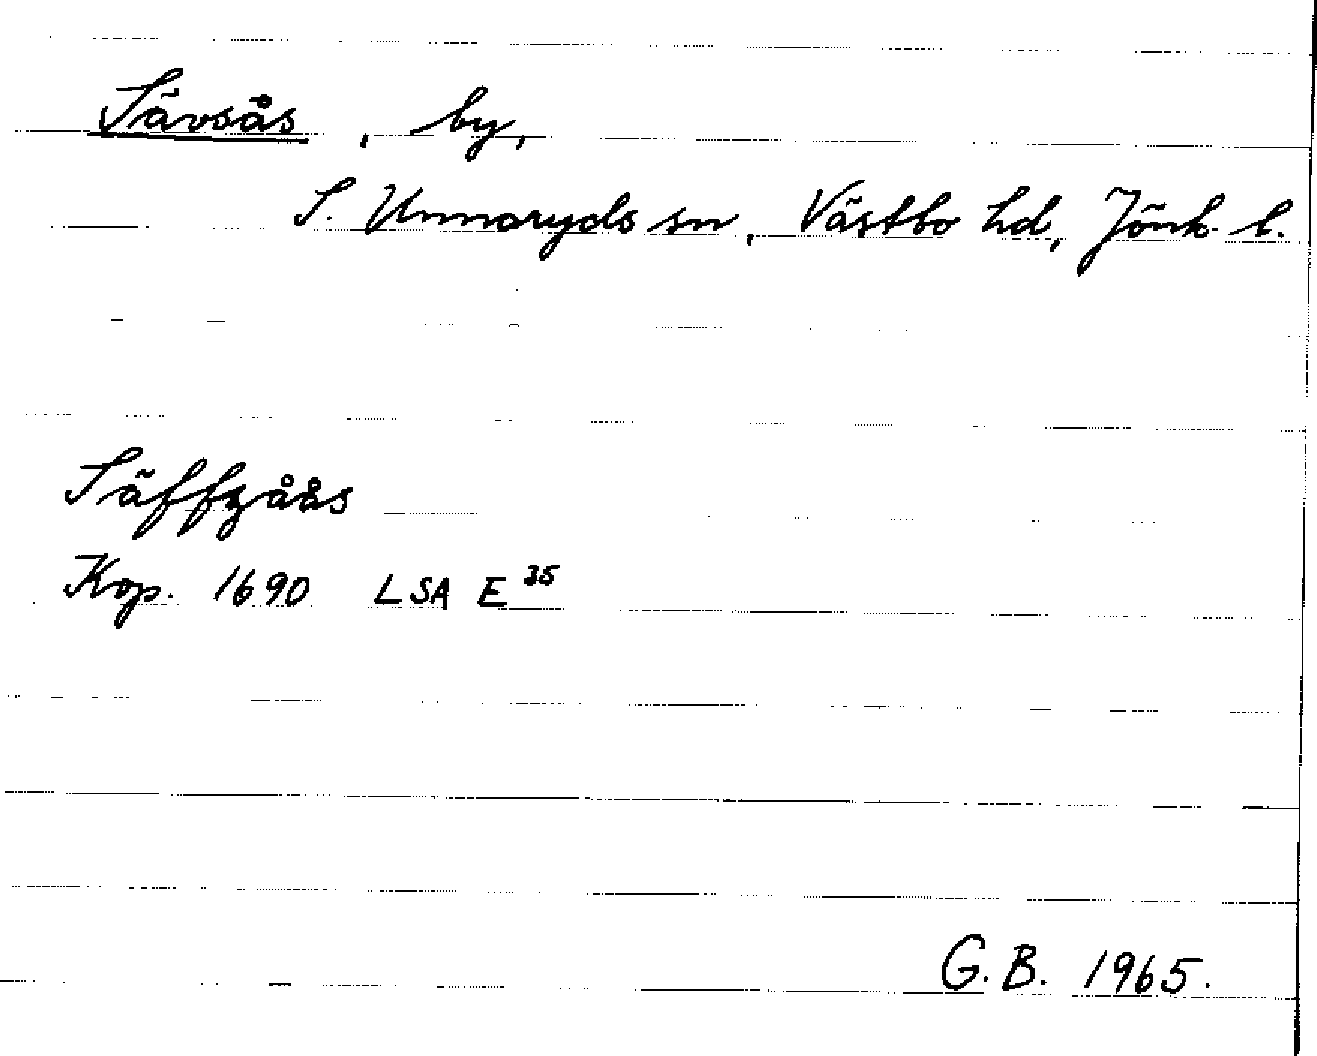 Sävsås, by,
S. Unnaryds sn, Västbo hd, Jönk. l.
Säffzåås
Kop. 1690 LSA E 35
G.B. 1965.